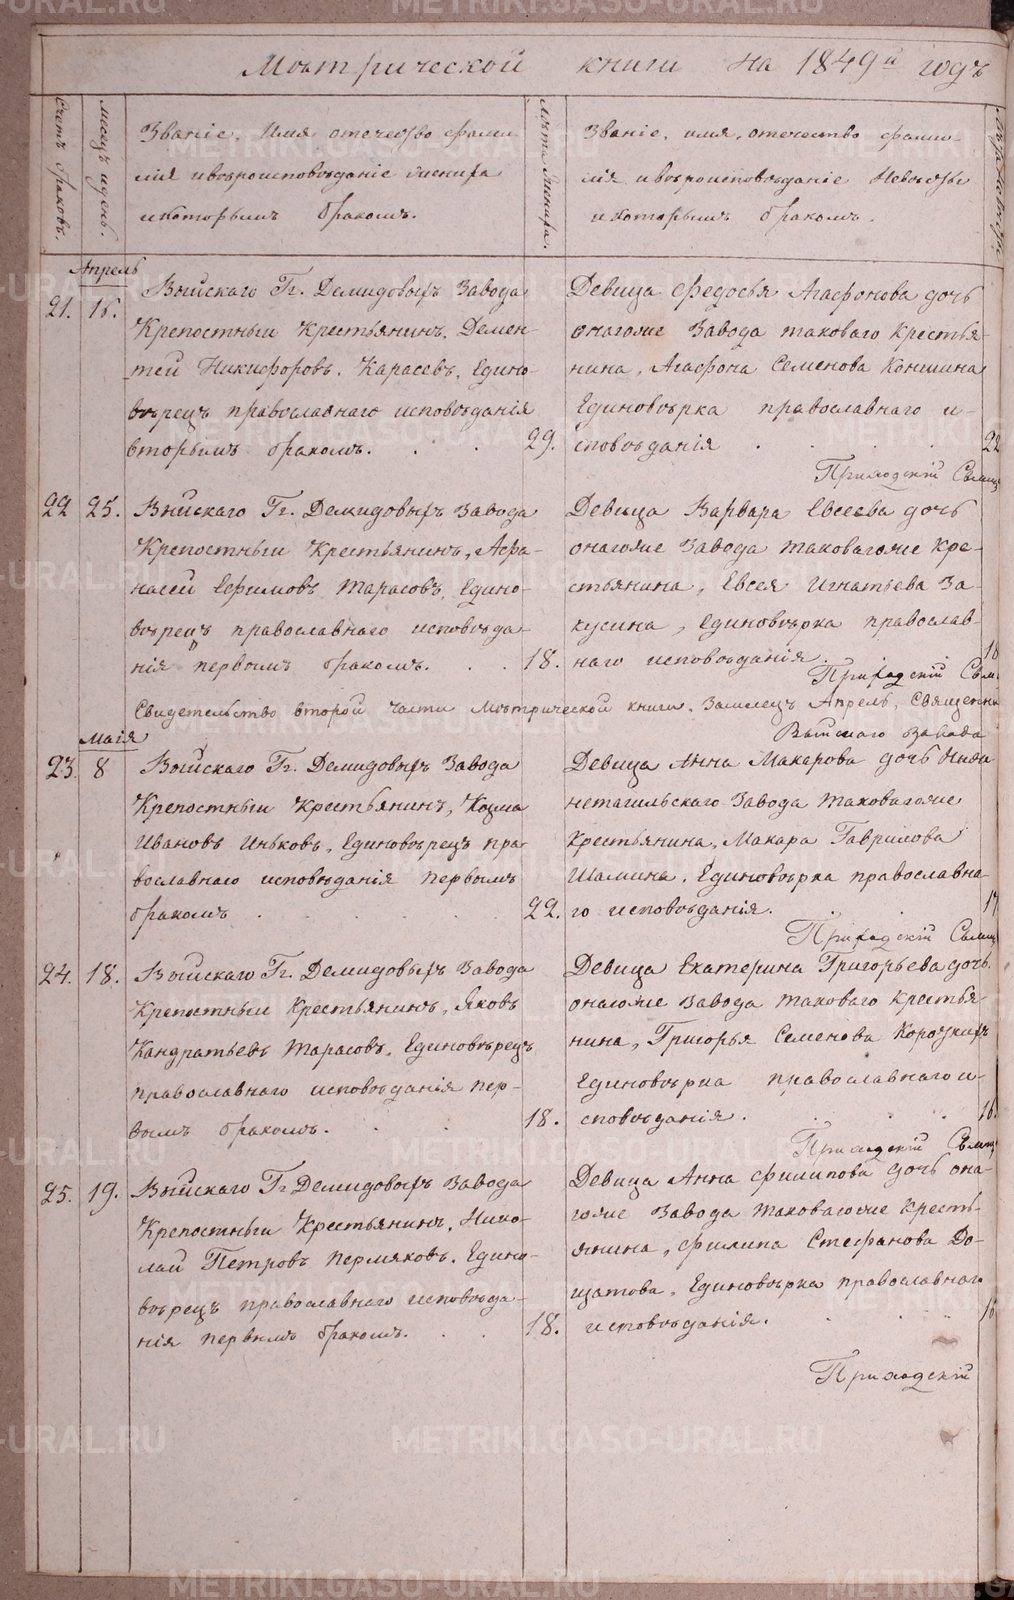 Метрической книги на 1849й годъ
Счетъ браковъ.
Месяцъ и день.
Званіе, Имя отечество фами-
лія и вѣроисповѣданіе жениха
и которымъ бракомъ.
Лѣта жениха.
Званіе, имя, отечество фами-
лія и вѣроисповѣданіе Невѣсты
и которымъ бракомъ.
Апрель
21. 16. Выйскаго Гг. Демидовыхъ Завода
Крепостный Крестьянинъ, Демен-
тей Никифоровъ, Карасевъ, Едино-
вѣрецъ православнаго исповѣданія
вторымъ бракомъ. 29.
Девица Федосья Агафонова дочь
онагоже Завода таковаго крестья-
нина, Агафона Семенова Коншина
Единовѣрка православнаго и-
сповѣданія 22
Приходскій Свящ
22 25. Выйскаго Гг. Демидовыхъ Завода
Крепостный Крестьянинъ, Афа-
насей Ефимовъ Тарасовъ, Едино-
вѣрецъ православнаго исповѣда-
нія первымъ бракомъ. 18.
Девица Варвара Евсеева дочь
онагоже Завода таковагоже кре-
стьянина, Евсея Игнатьева За-
кусина, Единовѣрка православ-
наго исповѣданія. 18
Приходскій Свящ
Свидетельство второй части Метрической книги, За месецъ Апрель, Священни
Выйскаго завода
Маія
23. 8 Выйскаго Гг. Демидовыхъ Завода
Крепостный Крестьянинъ, Козма
Ивановъ Иньковъ, Единовѣрецъ пра-
вославнаго исповѣданія первымъ
бракомъ 22.
Девица Анна Макарова дочь Ниж-
нетагильскаго Завода таковагоже
Крестьянина, Макара Гаврилова
Шамина, Единовѣрка православна-
го исповѣданія. 17
Приходскій Свящ
24. 18. Выйскаго Гг. Демидовыхъ Завода
Крепостный Крестьянинъ, Яковъ
Кандратьевъ Тарасовъ, Единовѣрецъ
православнаго исповѣданія пер-
вымъ бракомъ. 18.
Девица Екатерина Григорьева дочь
онагоже Завода таковаго крестья-
нина, Григорья Семенова Короткихъ
Единовѣрка православнаго и-
сповѣданія. 16.
Приходскій Свящ
25. 19. Выйскаго Гг Демидовыхъ Завода
Крепостный Крестьянинъ, Нико-
лай Петровъ Пермяковъ, Едино-
вѣрецъ православнаго исповѣда-
нія первымъ бракомъ. 18.
Девица Анна Филипова дочь она-
гоже Завода таковагоже Кресть-
янина, Филипа Стефанова До-
щатова, Единовѣрка православнаго
исповѣданія.
Приходскій
METRIKI.GASO-URAL.RU